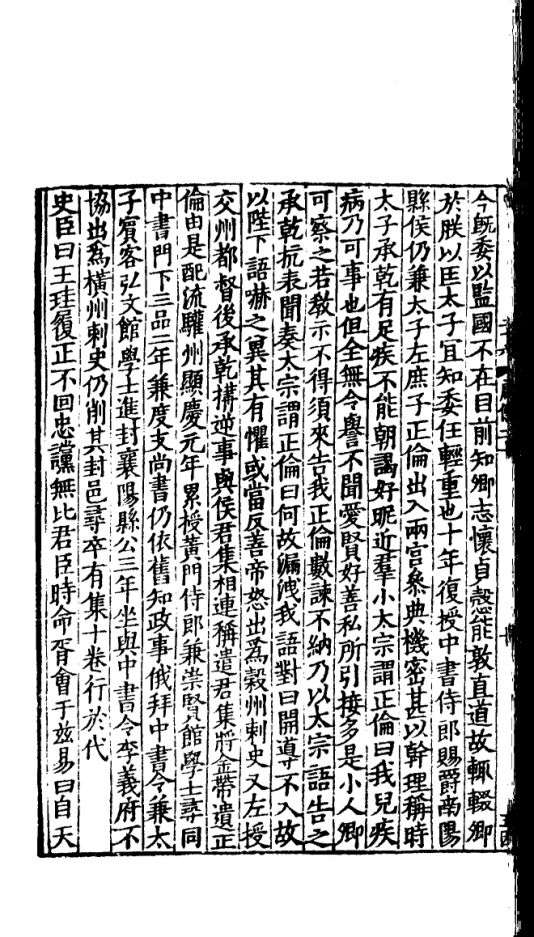 今旣委以監國不在目前知卿志懷貞慤能敦直道故輟卿
於朕以匡太子宜知委任輕重也十年復授中書侍郎賜爵南陽
縣侯仍兼太子左庶子正倫出入兩宮叅典機密甚以幹理稱時
太子承乾有足疾不能朝謁好昵近羣小太宗謂正倫曰我兒疾
病乃可事也但全無令譽不聞愛賢好善私所引接多是小人卿
可察之若敎示不得須來告我正倫數諫不納乃以太宗語告之
承乾抗表聞奏太宗謂正倫曰何故漏洩我語對曰開導不入故
以陛下語嚇之異其有懼或當反善帝怒出爲穀州刺史又左授
交州都督後承乾搆逆事與侯君集相連稱遣君集將金帶遺正
倫由是配流驩州顯慶元年累授黃門侍郎兼崇賢館學士尋同
中書門下三品二年兼度支尚書仍依舊知政事俄拜中書令兼太
子賓客弘文館學士進封襄陽縣公三年坐與中書令李義府不
協出爲橫州刺史仍削其封邑尋卒有集十卷行於代
史臣曰王珪履正不回忠讜無比君臣時命胥會于兹易曰自天